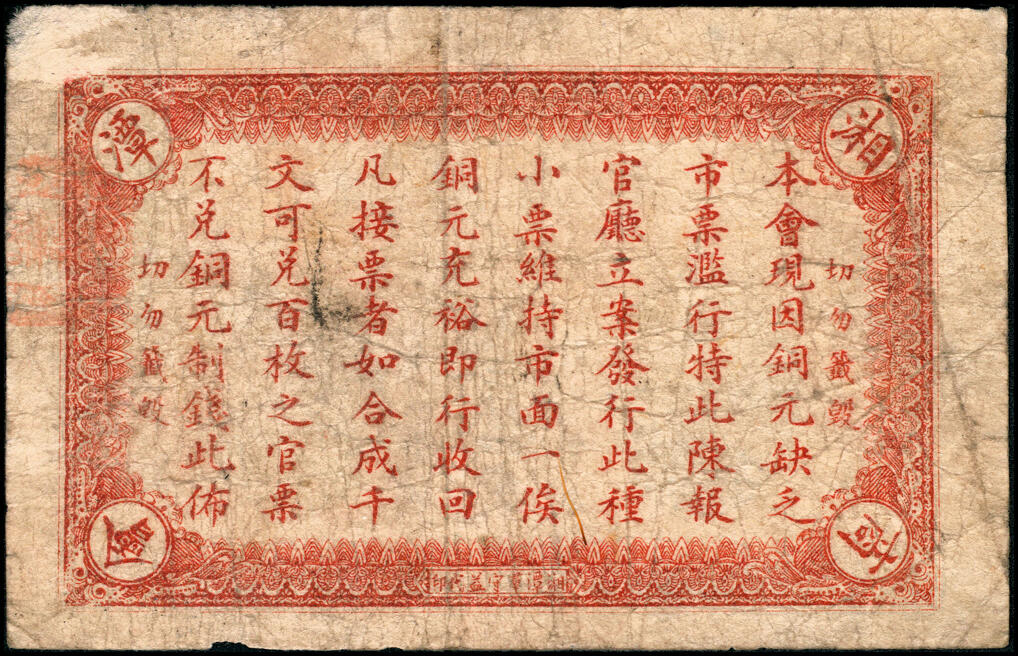 湘
潭
商
會
切勿籤毀
本會現因銅元缺乏
市票濫行特此陳報
官廳立案發行此種
小票維持市面一俟
銅元充裕即行收回
凡接票者如合成千
文可兑百枚之官票
不兑銅元制錢此佈
切勿籤毀